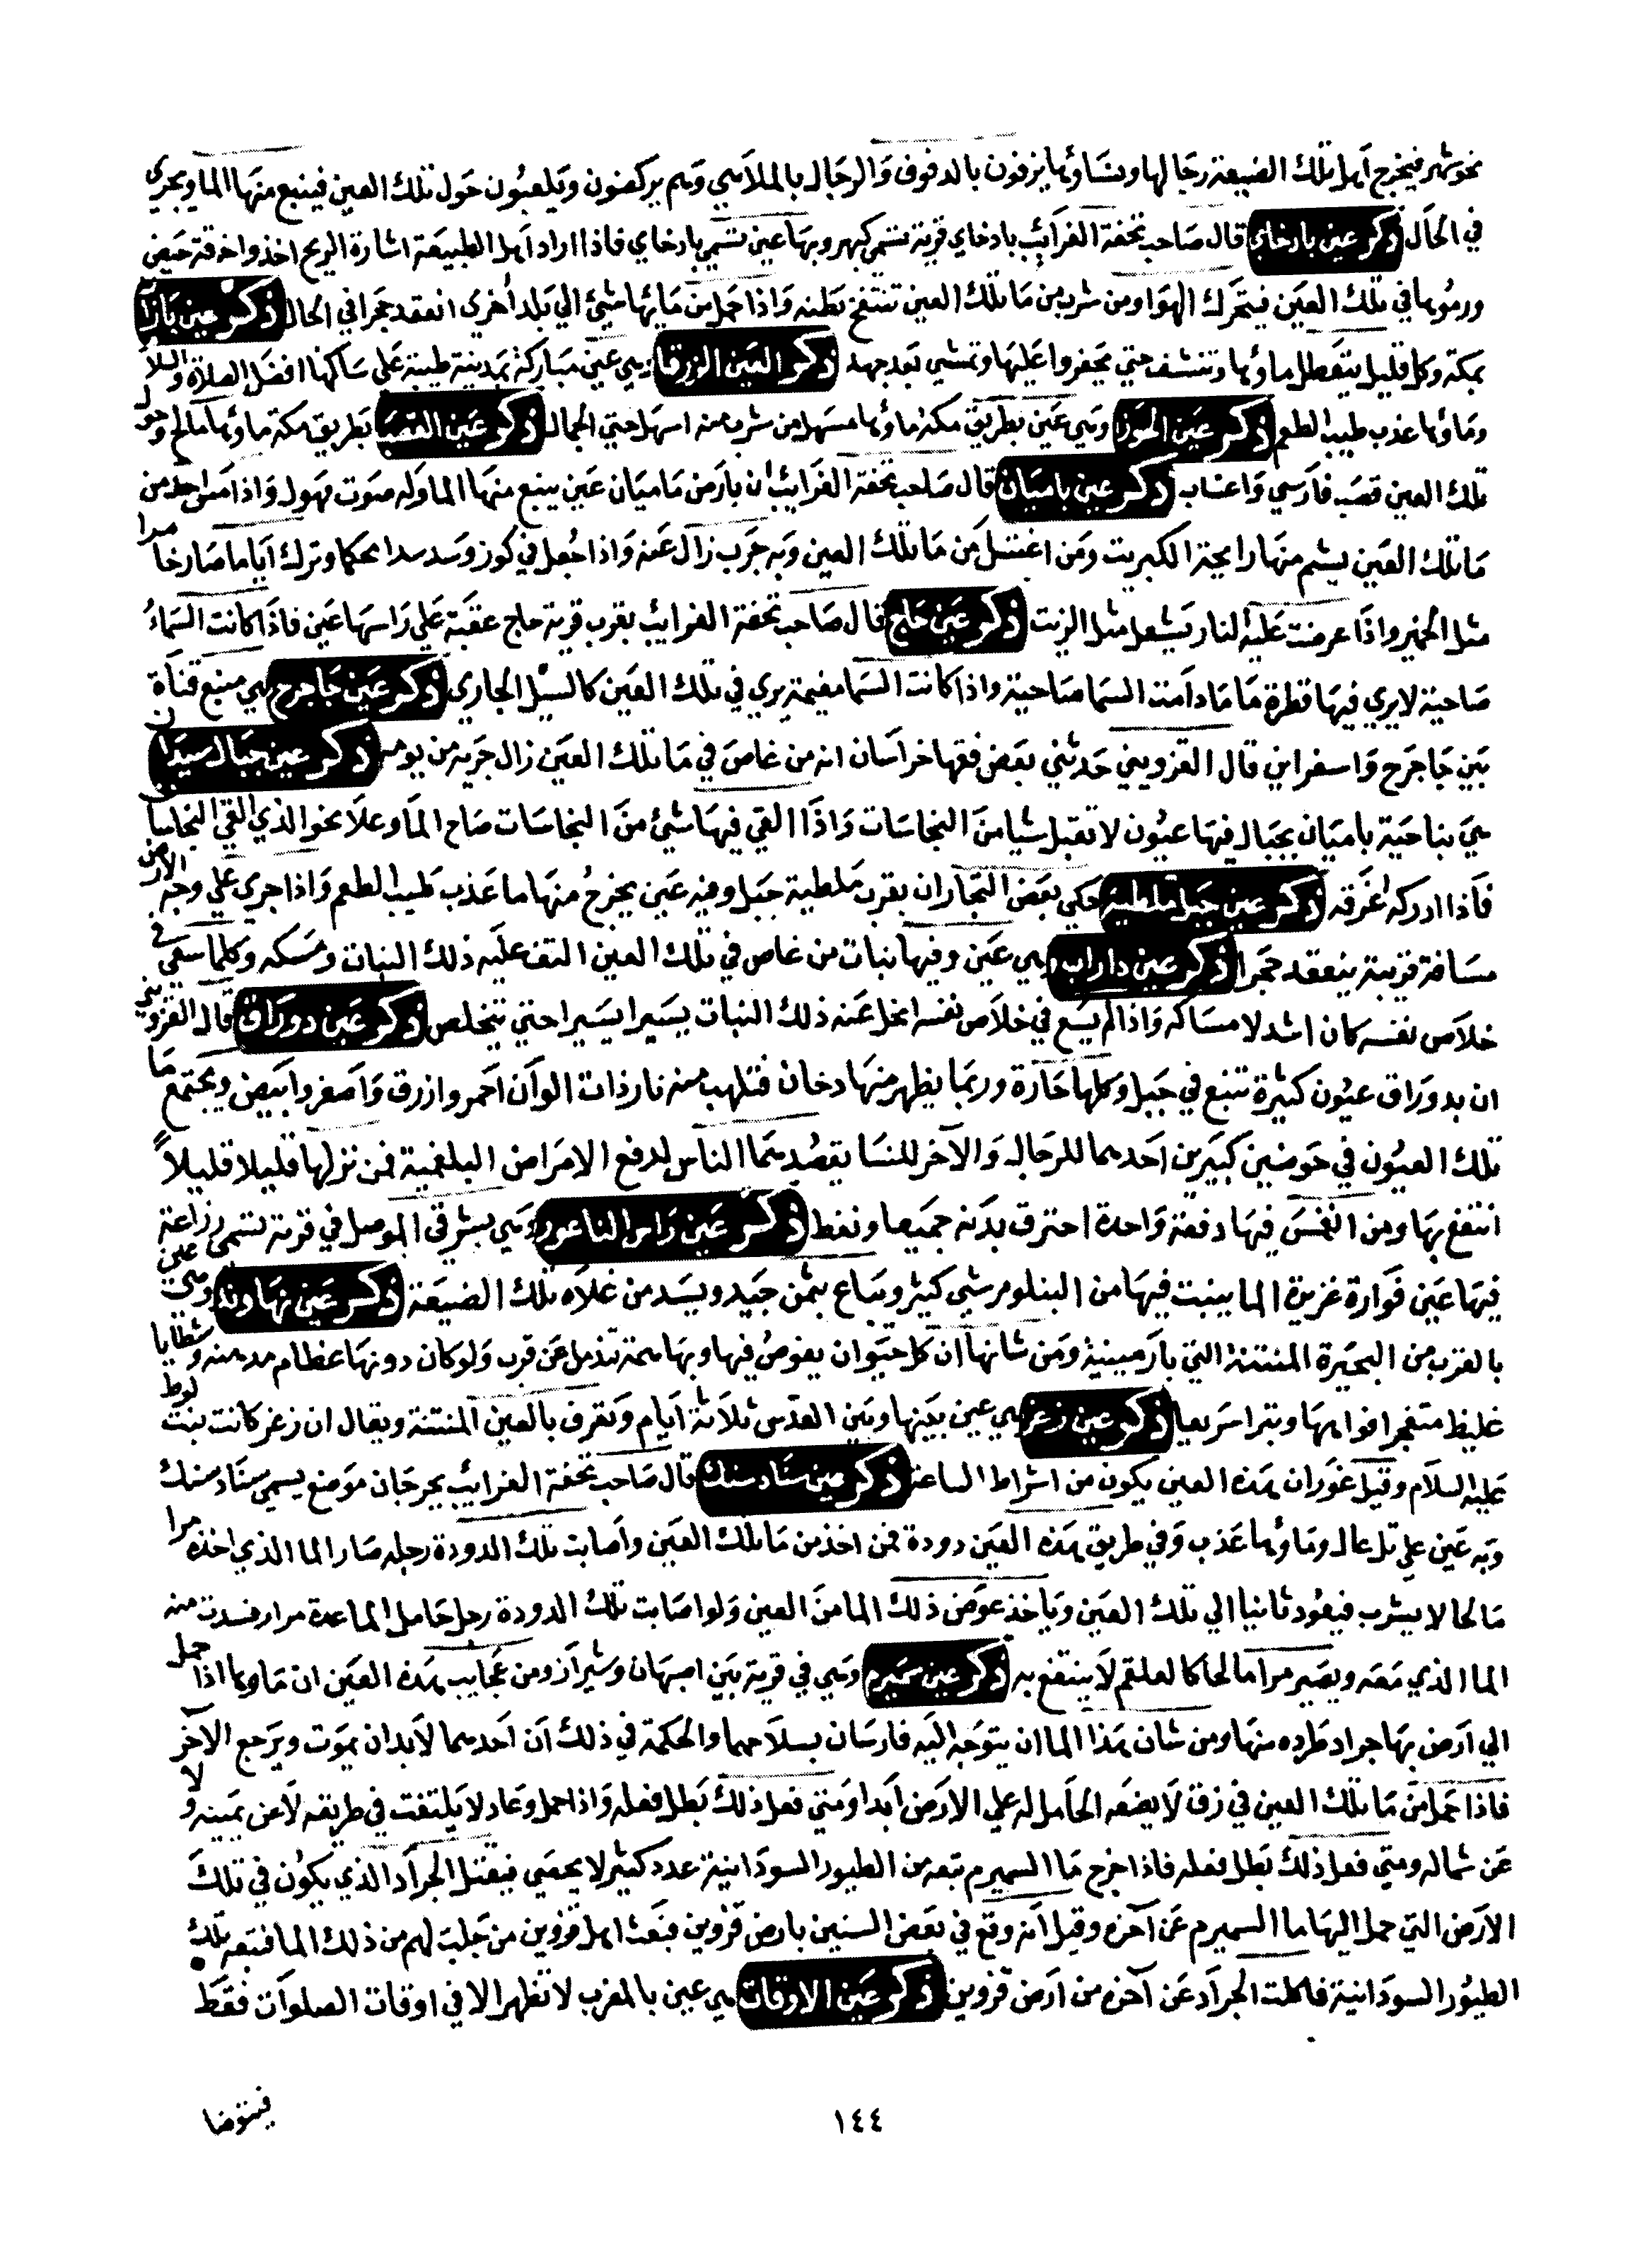 نحو شهر فيخرج اهل تلك الضيعة رجالها ونساؤها يزفون بالدفوف والرجال بالملاهي وهم يركضون ويلعبون حول تلك العين فينبع منها الما ويجري
في الحال ذكر عين بادخاي قال صاحب تحفة الغرائب بادخاي قرية تسمى كهر وبها عين تسمي بادخاي فاذا اراد اهل الطبيعة اشارة الريح اخذوا خرقة حيض
ورموها في تلك العين فيتحرك الهوا ومن شرب من ما تلك العين تنتفخ بطنه واذا حمل من مائها شئ الي بلد أخري انعقد حجرا في الحال ذكر عين بازان
بمكة وكل قليل يتعطل ماؤها وتنشف حتي يحفروا عليها وتمشي بعد جهد ذكر العين الزرقا وهي عين مباركة بمدينة طيبة على ساكنها افضل الصلاة والسلا
وماؤها عذب طيب الطعم ذكر عين وهي عين بطريق مكة ماؤها مسهل من شرب منه اسهل حتي الجمال ذكر عين القصب بطريق مكة ماؤها مالح وحول
تلك العين قصب فارسي واعشاب ذكر عين باميان قال صاحب تحفة الغرايب ان بارض باميان عين ينبع منها الما وله صوت مهول واذا من
ما تلك العين يشم منها رايحة الكبريت ومن اغتسل من ما تلك العين وبه جرب زال عنه واذا جعل في كوز وسد سدا محكما وترك اياما صار خا
مثل الخمير واذا عرضت عليه النار يشعل مثل الزيت ذكر عين جاج قال صاحب تحفة الغرايب بقرب قرية جاج عقبة علي راسها عين فاذا كانت السماء
صاحية لا يري فيها قطرة ما ما دامت السما صاحية واذا كانت السما مغيمة يري في تلك العين كالسيل الجاري ذكر عين جاجرم هي منبع قناة
بين جاجرم واسفراين قال القزويني حدثني بعض فقها خراسان انه من غاص في ما تلك العين زال جربه من يومه ذكر عين جبال سيدان
هي بناحية باميان بجبال فيها عيون لا تقبل شيا من النجاسات واذا القي فيها شئ من النجاسات صاح الما وعلا نحو الذي القي النجاسا
فاذا ادركه غرقه ذكر عين جبل ملطية حكي بعض التجار ان بقرب ملطية جبل وفيه عين يخرج منها ما عذب طيب الطعم واذا جري علي وجه الارض
مسافة قريبة ينعقد حجرا ذكر عين داراب هي عين وفيها نبات من غاص في تلك العين التف عليه ذلك النبات ومسكه وكلما سعي في
خلاص نفسه كان اشد لامساكه واذا لم يسع في خلاص نفسه انحل عنه ذلك النبات يسيرا يسيرا حتي يتخلص ذكر عين دوراق قال القزويني
ان بدوراق عيون كثيرة تنبع في جبل وكلها حارة وربما يظهر منها دخان فتلهب منه نار ذات الوان احمر وازرق واصفر وابيض ويجتمع ما
تلك العيون في حوضين كبيرين احدهما للرجال والآخر للنسا يقصدهما الناس لدفع الامراض البلغمية فمن نزلها قليلا قليلاً
انتفع بها ومن انغمس فيها دفعة واحدة احترق بدنه جميعا ونفط ذكر عين راس الناعور وهي بشرقي الموصل في قرية تسمى زراعة
فيها عين فوارة غزيرة الما ينبت فيها من البنلوفر شي كثير ويباع بثمن جيد ويسد من غلاه تلك الضيعة ذكر عين نهاوند وهي عين
بالقرب من البحيرة المنتنة التي بارمينية ومن شانها ان كل حيوان يغوص فيها وبها تندمل عن قرب ولو كان دونها عظام وشظايا
غليظ متفجر افواهها وتبرا سريعا ذكر عين زغر هي عين بينها وبين القدس ثلاثة ايام وتعرف بالعين المنتنة ويقال ان زغر كانت بنت لوط
عليه السلام وقيل غوران هذه العين يكون من اشراط الساعة ذكر عين سناد سنك قال صاحب تحفة الغرائب بجرجان موضع يسمي سناد سنك
وبه عين علي تل عال وماؤها عذب وفي طريق هذه العين دودة فمن اخذ من ما تلك العين واصابت تلك الدودة رجله صار الما الذي اخذه مرا
مالحا لا يشرب فيعود ثانيا الي تلك العين وياخذ عوض ذلك الما من العين ولو اصابت تلك الدودة رجل حامل الما عدة مرار فسدت منه
الما الذي معه ويصير مرا مالحا كالعلقم لا ينتفع به ذكر عين سميرم وهي في قرية بين اصبهان وشيراز ومن عجايب هذه العين ان ماوها اذا حمل
الي ارض بها جراد طرده منها ومن شان هذا الما ان يتوجه اليه فارسان بسلاحهما والحكمة في ذلك ان احدهما لابد ان يموت ويرجع الآخر
فاذا حمل من ما تلك العين في زق لا يضعه الحامل له علي الارض ابدا ومتي فعل ذلك بطل فعله واذا حمل وعاد لا يلتفت في طريقه لا عن يمينه ولا
عن شماله ومتي فعل ذلك بطل فعله فاذا خرج ما السميرم تبعه من الطيور السودانية عدد كثير لا يحصي فيقتل الجراد الذي يكون في تلك
الارض التي حمل اليها ما السميرم عن آخره وقيل انه وقع في بعض السنين بارض قزوين فبعث اهل قزوين من جلب لهم من ذلك الما فتبعه تلك
الطيور السودانية فاكلت الجراد عن آخره من ارض قزوين ذكر عين الاوقات هي عين بالمغرب لا تظهر الا في اوقات الصلوات فقط
فيتوضا
١٤٤